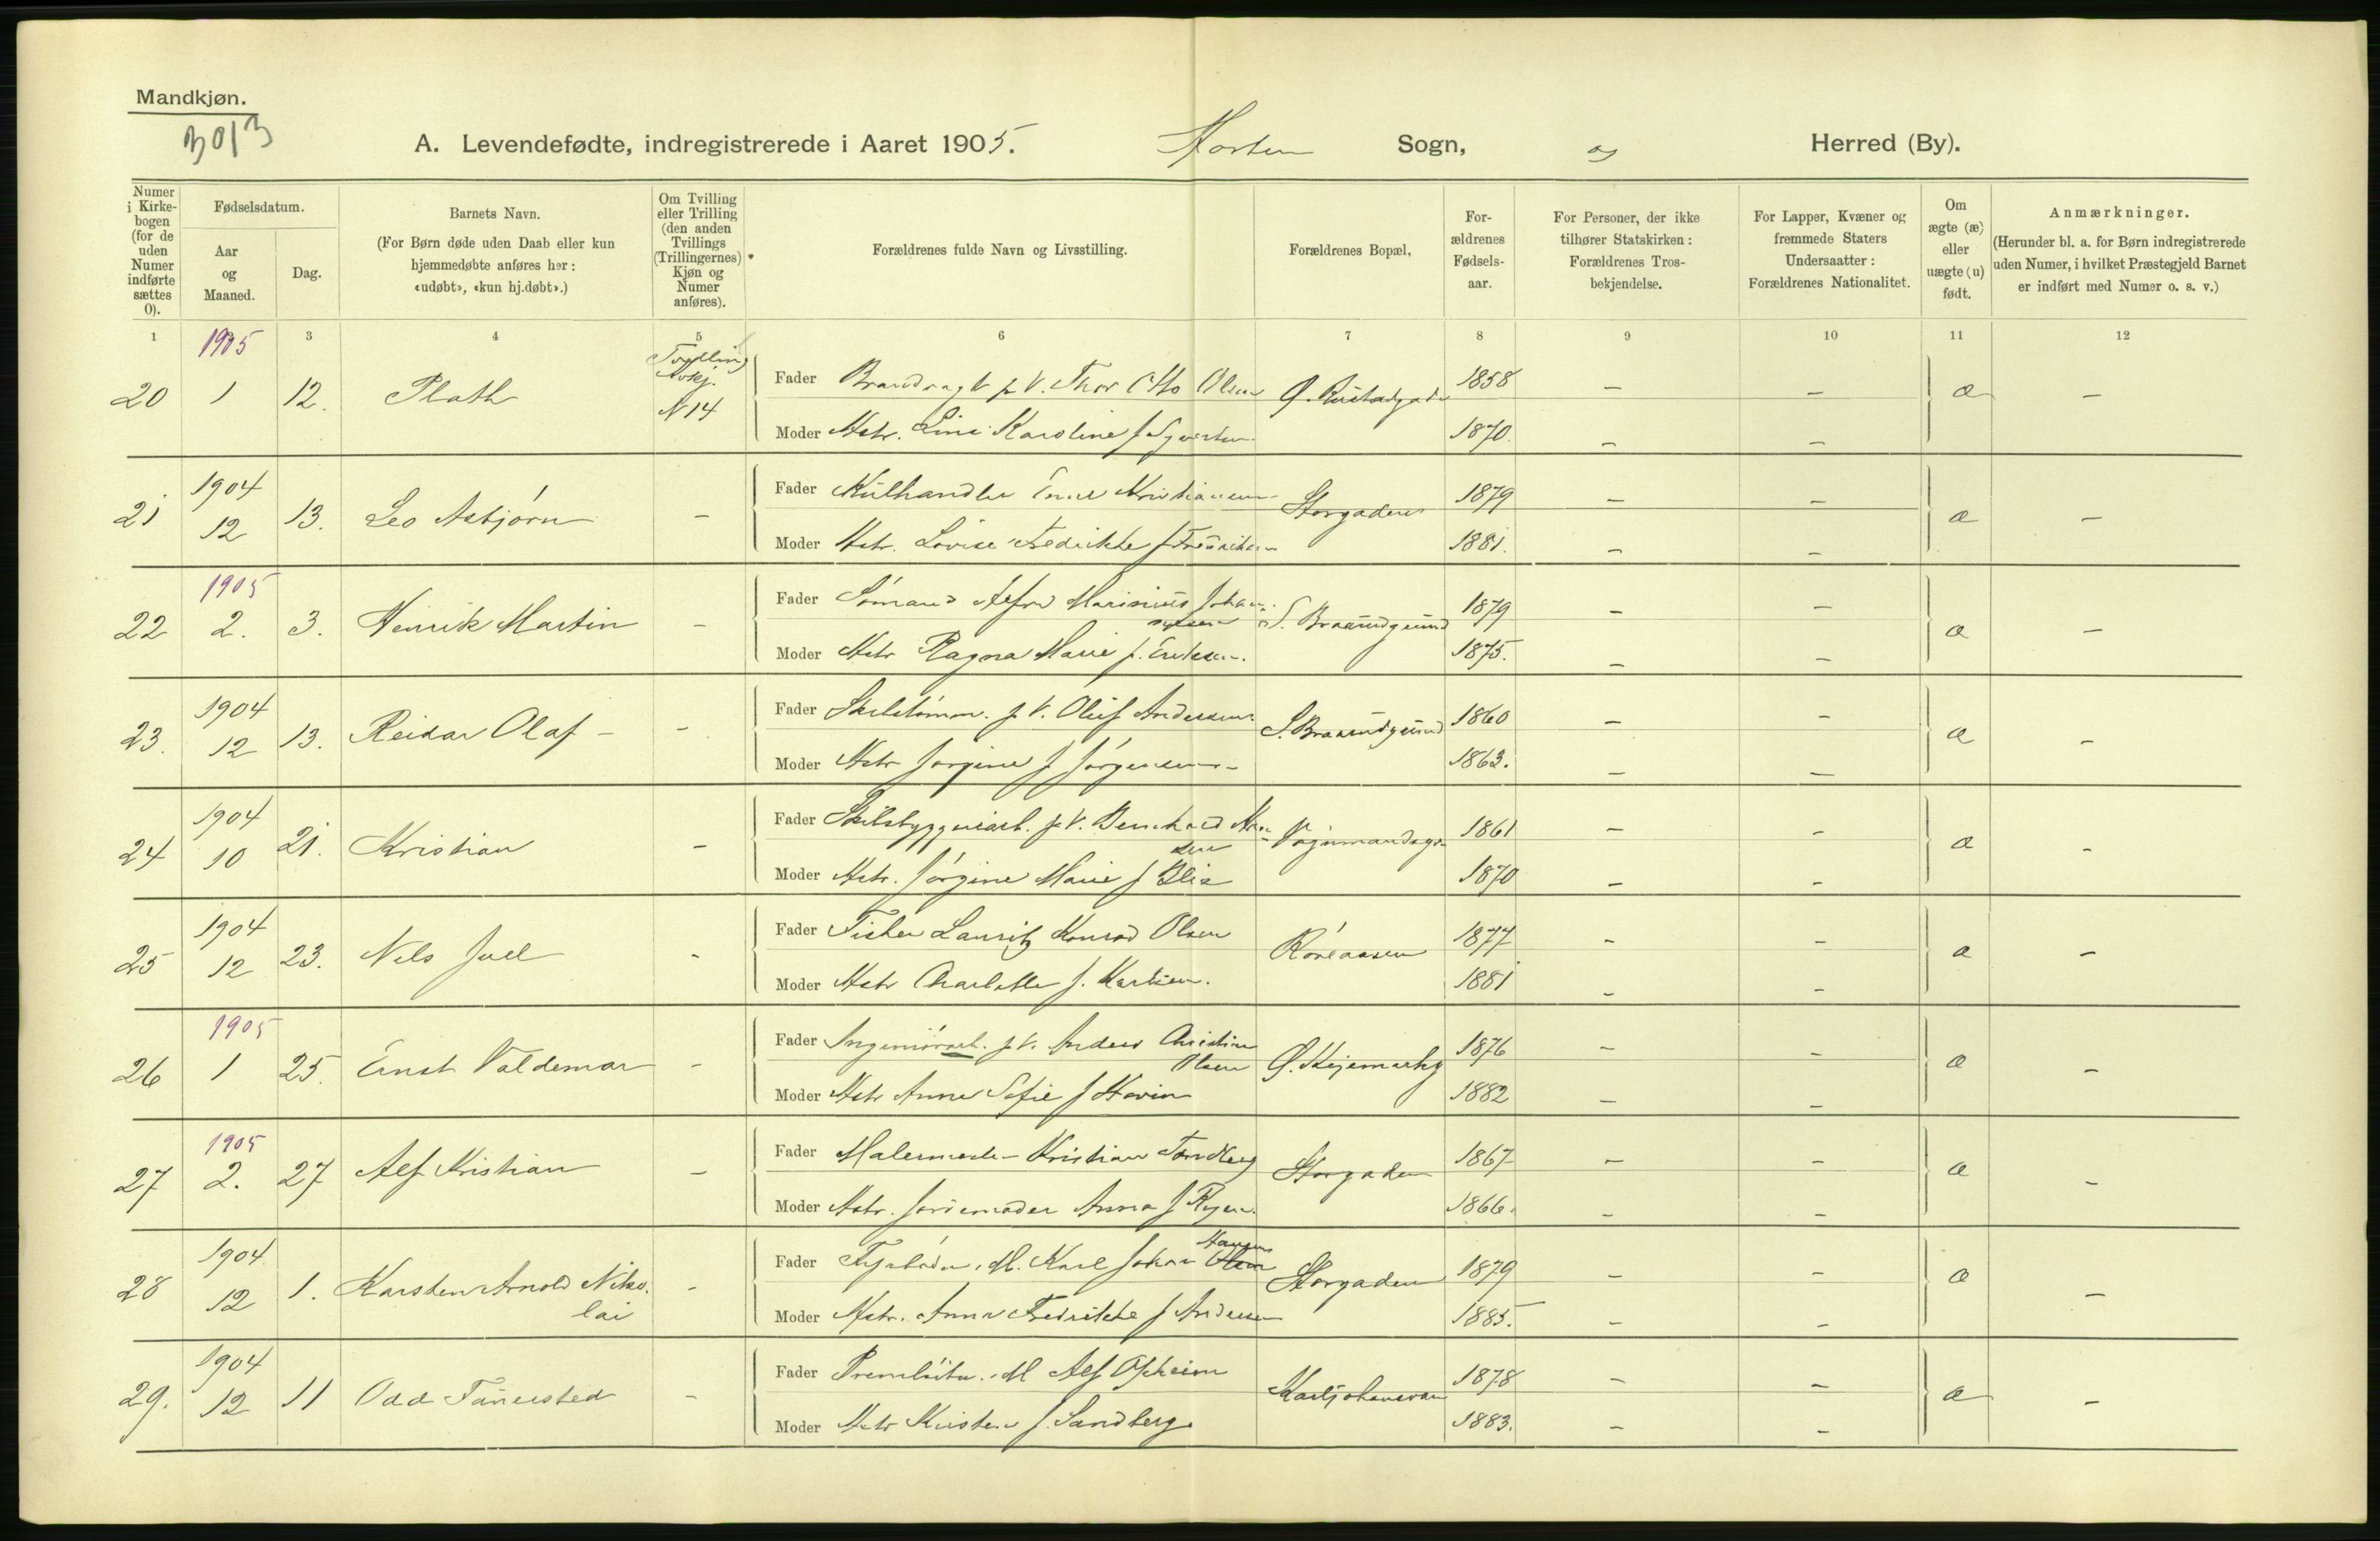 Mandkjøn.
3013
A. Levendefødte, indregistrerede i Aaret 1905. Horten Sogn, og Herred (By).
Numer i Kirkebogen (for de uden Numer indførte sættes 0).
Fødselsdatum.
Aar og Maaned.
Dag.
Barnets Navn.
(For Børn døde uden Daab eller kun hjemmedøbte anføres her: «udøbt», «kun hj.døbt».)
Om Tvilling eller Trilling (den anden Tvillings (Trillingernes) Kjøn og Numer anføres).
Forældrenes fulde Navn og Livsstilling.
Forældrenes Bopæl,
Forældrenes Fødselsaar.
For Personer, der ikke tilhører Statskirken: Forældrenes Trosbekjendelse.
For Lapper, Kvæner og fremmede Staters Undersaatter: Forældrenes Nationalitet.
Om ægte (æ) eller uægte (u) født.
Anmærkninger.
(Herunder bl. a. for Børn indregistrerede uden Numer, i hvilket Præstegjeld Barnet er indført med Numer o. s. v.)
1 3 4 5 6 7 8 9 10 11 12
20 1905 1 12. Tvilling N 14 Fader Thor Otto Olsen 1858 – – æ –
Moder Hstr. Line Karoline f 1870. – –
21 1904 12 13. Leo Asbjørn – Fader Kulhandler Kristiansen Storgaden 1879 – – æ –
Moder Hstr. Lovise Fredrikke f 1881. – –
22 1905 2. 3. Henrik Martin – Fader Sømand Marinius Johannesen S. Braarudgrund 1879 – – æ –
Moder Hstr Ragna Marie f. Eriksen. 1875. – –
23. 1904 12 13. Reidar Olaf – – Fader Skibstømm. p V. Oluf Andersen S. Braarudgrund 1860 – – æ –
Moder Hstr Jørgine f Jørgensen – 1863. – –
24 1904 10 21. Kristian – Fader Skibsbyggeriarb. p V. Bernhard 1861 – – æ –
Moder Hstr. Jørgine Marie f 1870 – –
25 1904 12 23. Nils Juel – Fader Fisker Lauritz Konrad Olsen Røreaasen 1877 – – æ –
Moder Hstr Charlotte f. 1881 – –
26 1905 1 25. Ernst Valdemar – Fader Ingeniørarb. p V. Anders Christian Olsen 1876 – – æ –
Moder Hstr Anne Sofie f 1882 – –
27 1905 2. 27 Alf Kristian – Fader Malermester Kristian Storgaden 1867 – – æ –
Moder Hstr. Jordemoder Anna f 1866. – –
28 1904 12 1. Karsten Arnold Nikolai – Fader Fyrbøder i M. Karl Johan Hansen Storgaden 1879 – – æ –
Moder Hstr. Anna Fredrikke f Andersen 1885. – –
29. 1904 12 11 Odd – Fader Alf Opheim Karljohansværn 1878 – – æ –
Moder Hstr Kristen f. Sandberg 1883. – –